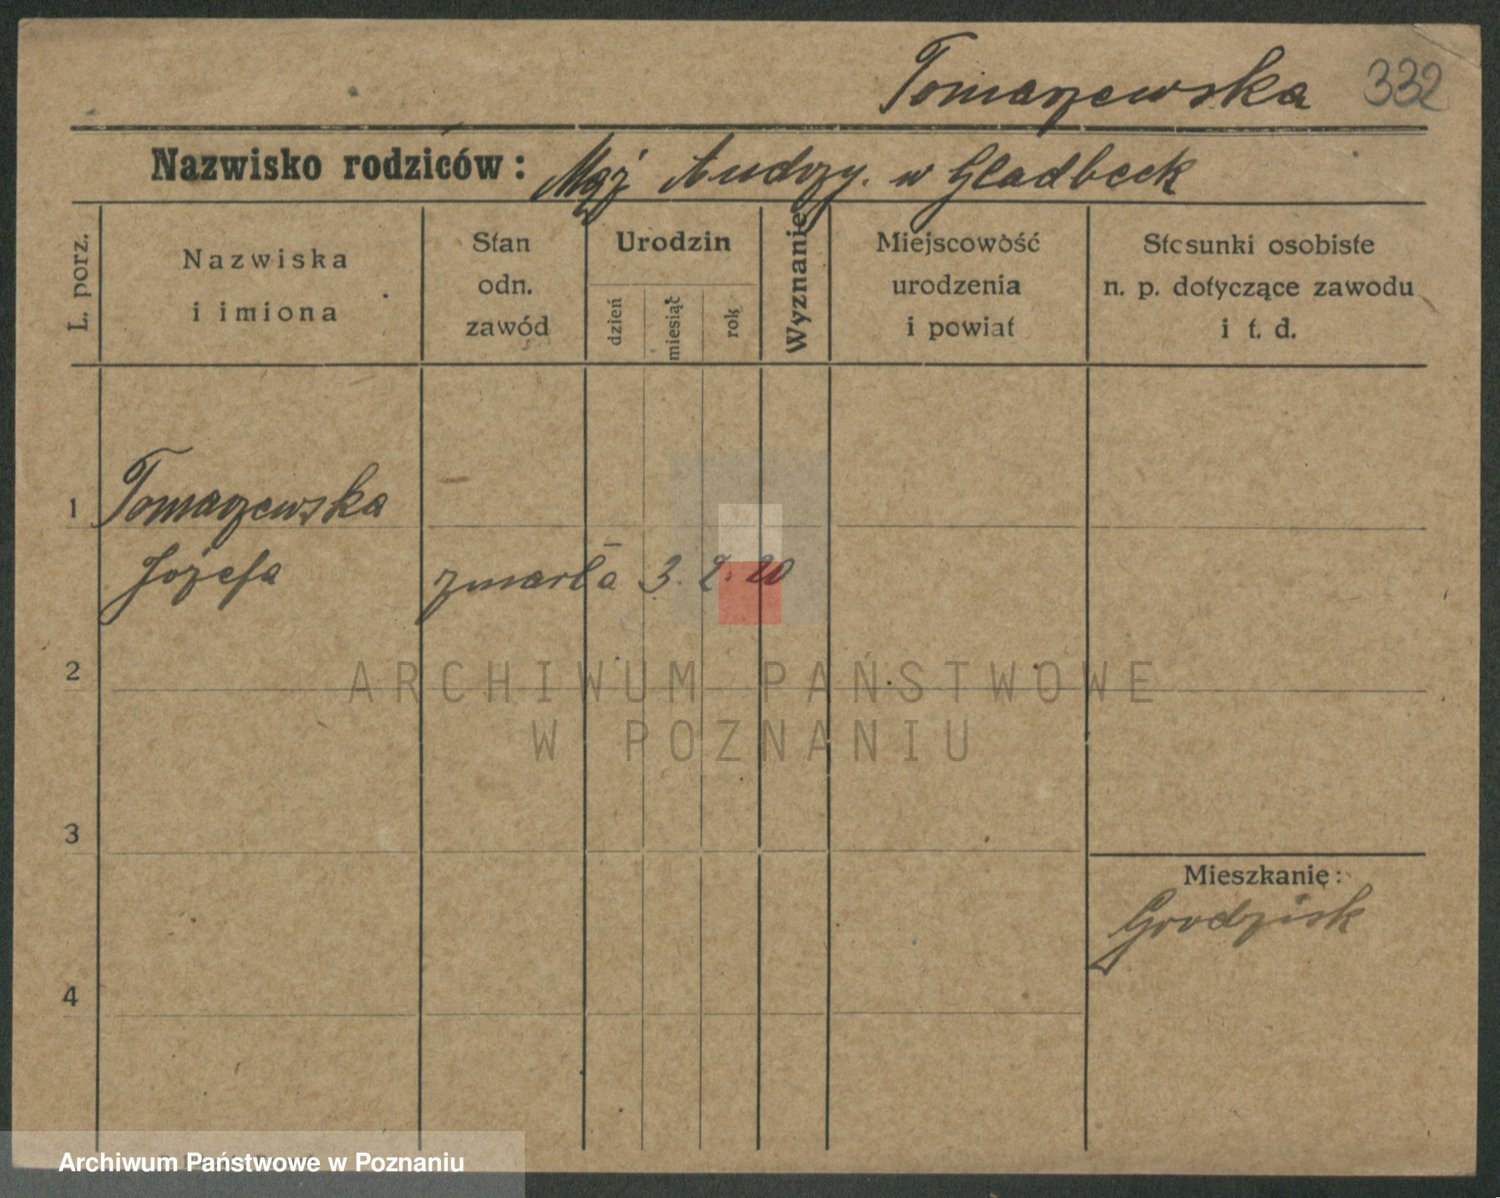 Tomaszewska 332
Nazwisko rodziców: Mąż Andrzy. w Gladbeck
L. porz.
Nazwiska
i imiona
Stan
odn.
zawód
Urodzin
dzień
miesiąc
rok
Wyznanie
Miejscowość
urodzenia
i powiat
Stosunki osobiste
n. p. dotyczące zawodu
i t. d.
1 Tomaszewska
Józefa zmarła 3. 2. 20
2
ARCHIWUM PAŃSTWOWE
W POZNANIU
3
Mieszkanie:
Grodzisk
4
Archiwum Państwowe w Poznaniu